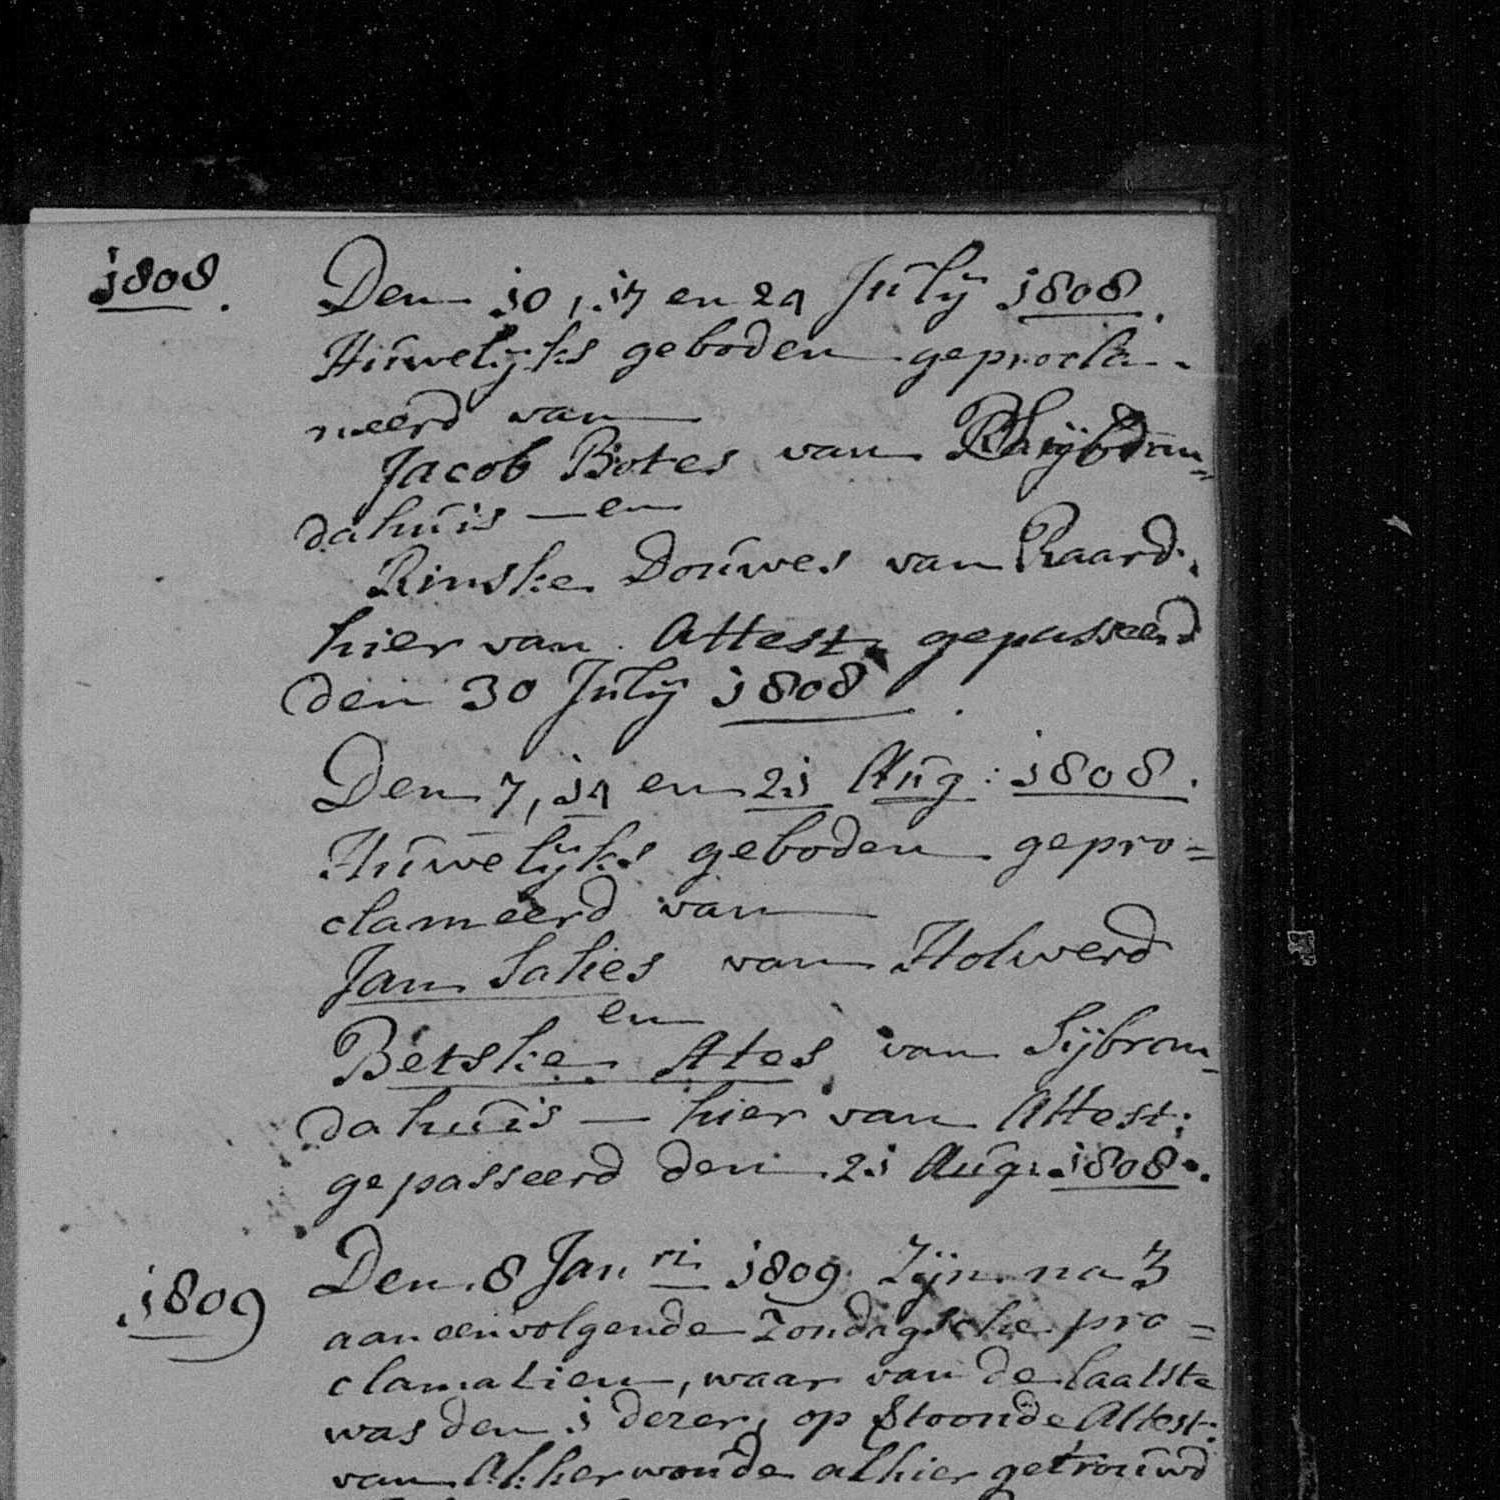 1808.
Den 10, 17 en 24 July 1808.
Huwelyks geboden geprocla-
meerd van
Jacob Botes van Sijbran=
dahuis — en
Rinske Douwes van Raard.
hier van Attest: gepasseerd
den 30 July 1808.
Den 7, 14 en 21 Aug: 1808.
Huwelyks geboden gepro=
clameerd van
Jan Sakes van Holwerd
en
Betske Ates van Sijbran=
dahuis — hier van Attest:
gepasseerd den 21 Aug: 1808.
1809
Den 8 Jan ri 1809. Zijn na 3
aaneenvolgende Zondagsche pro=
clamatien, waar van de laatste
was den 1 dezer, op Stoonde Attest:
van Akkerwoude alhier getrouwd